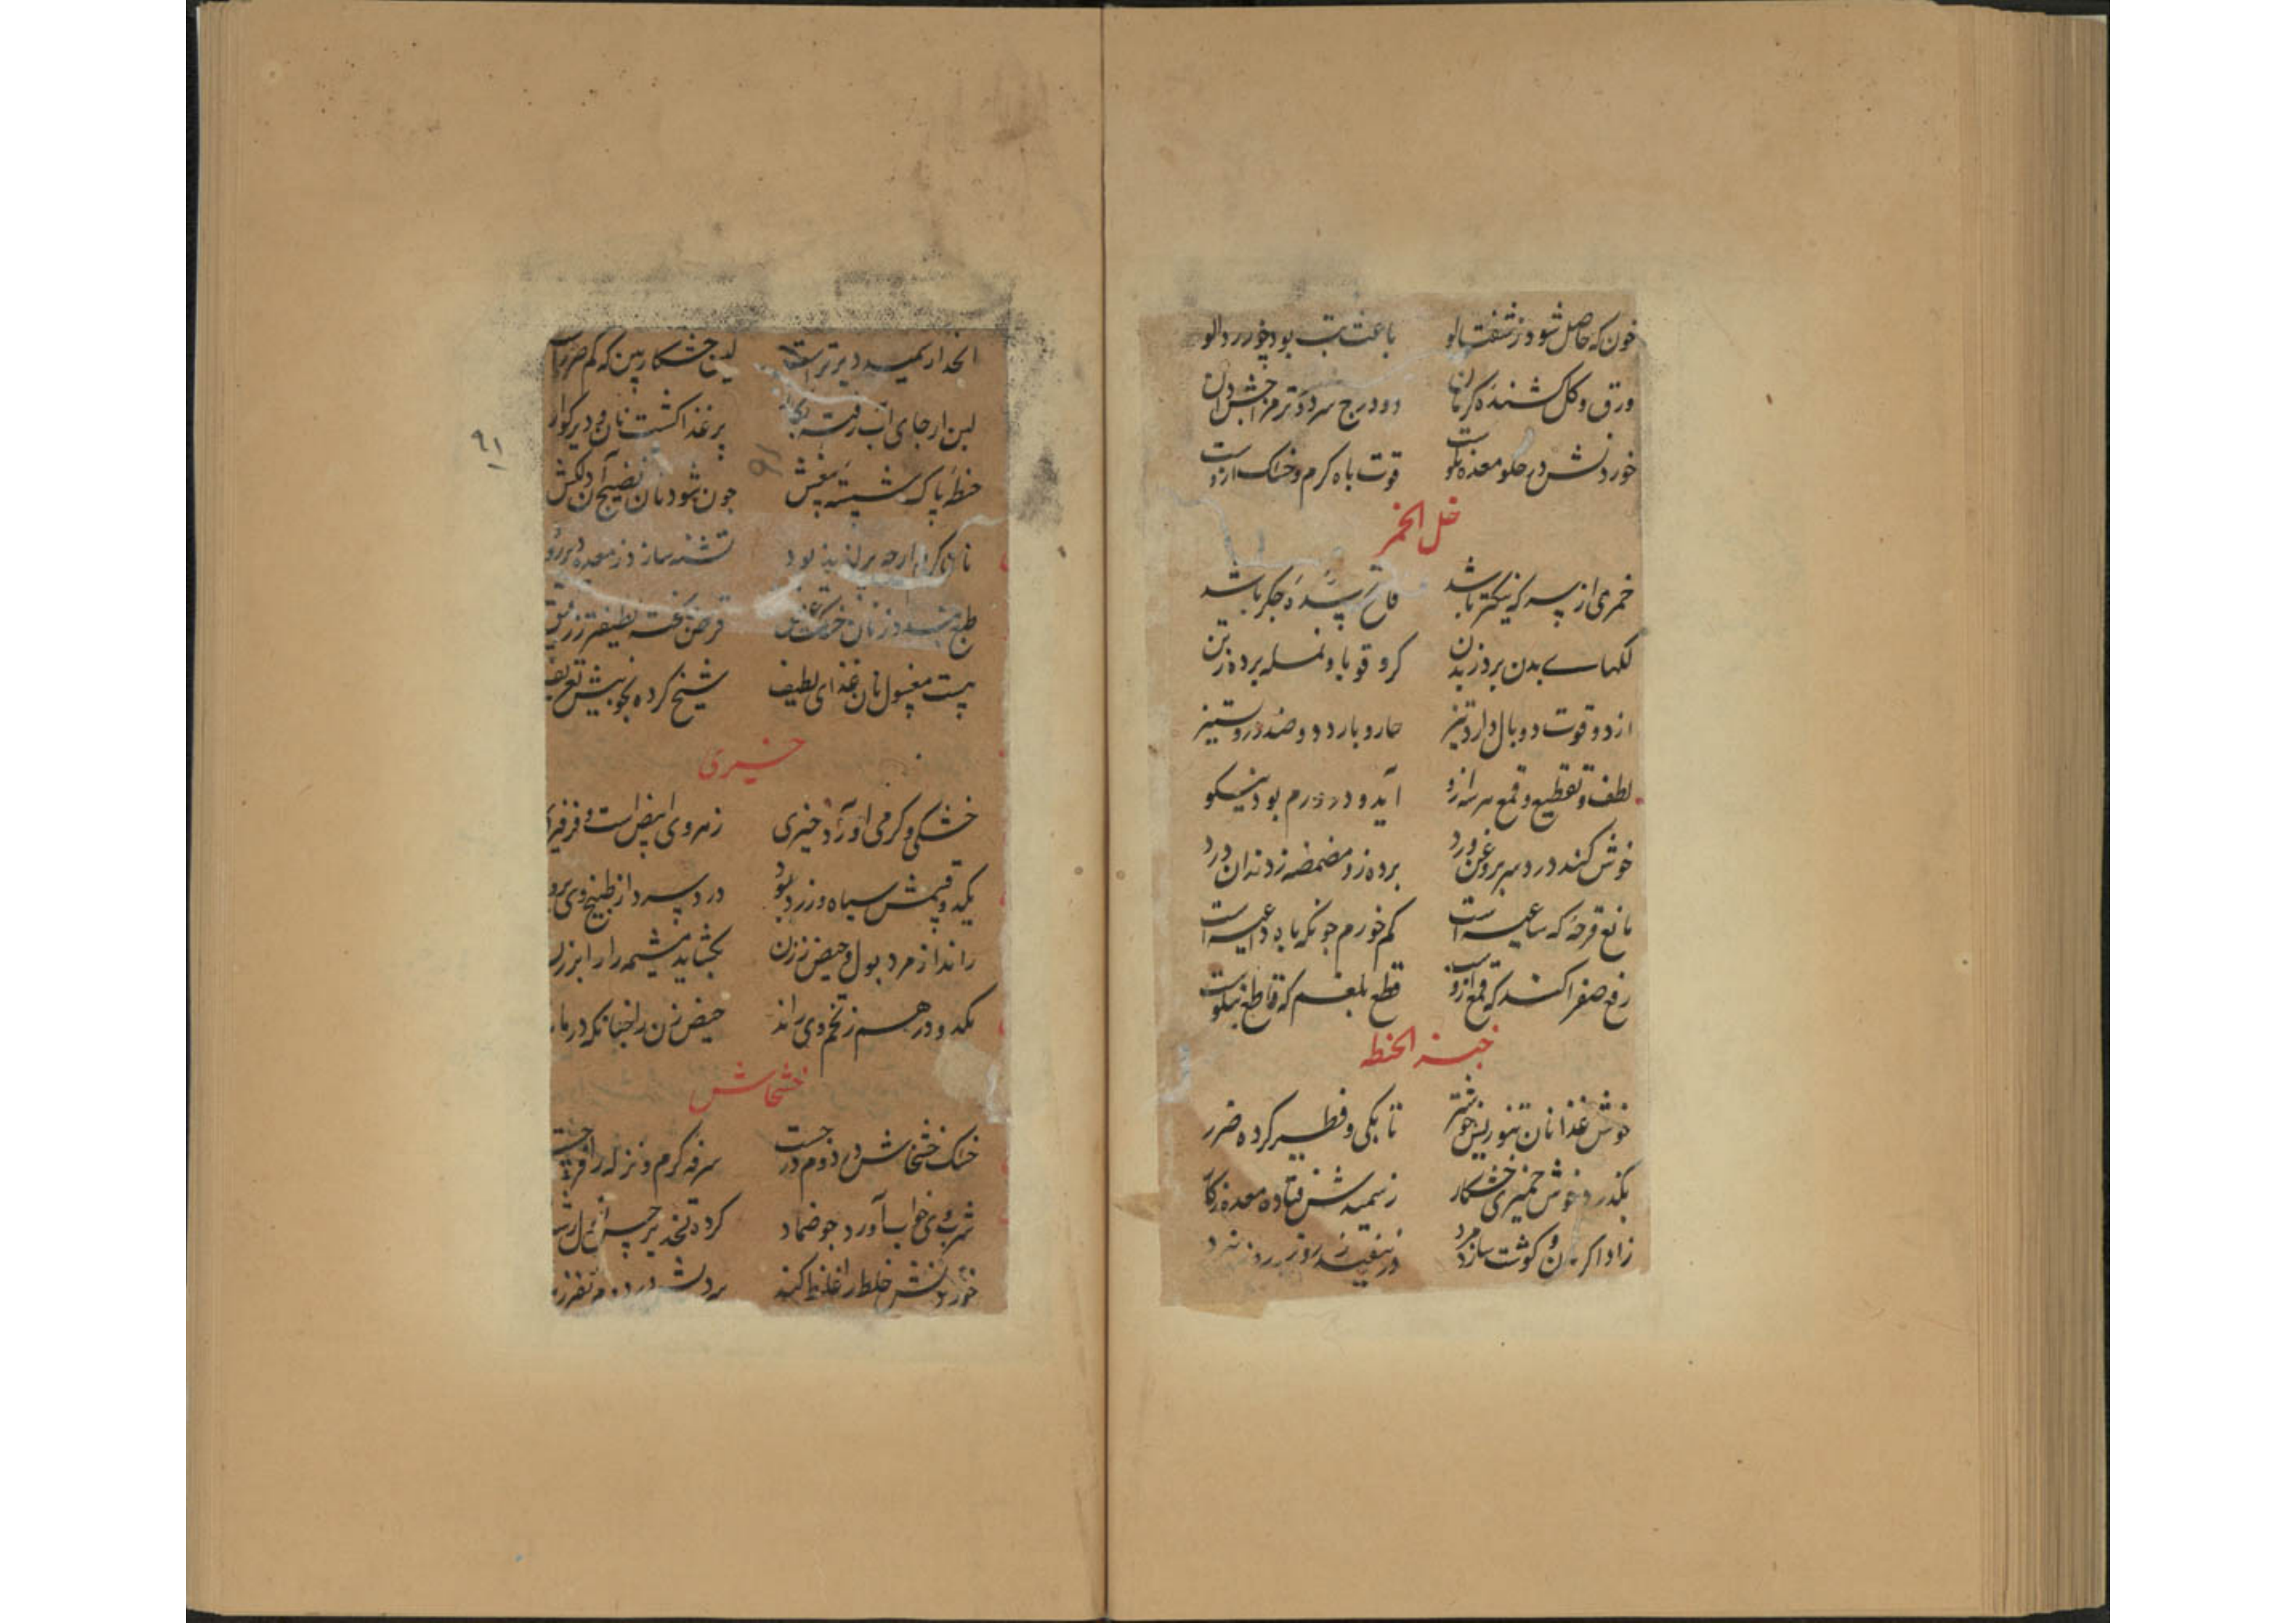 خون که حاصل شود ز شفتالو باعث تب بود چو زردالو
ورق و گل کشنده کرمان دو درج سرد و تر مزاجش دان
خوردنش در حلو معده نکوست قوت باه گرم و خشک ازوست
خل الخمر
خمری از پسه که نیکتر باشد قاع باشد
لکهای بدن برد ز بدن کر و قوبا و نمله برده ز تن
از دو قوت دو بال دارد تیز حار و بارد دو ضد درو ستیز
لطف و تقطیع و قمع هر سه ازو آید و در ورم بود نیکو
خوش کند درد سر بروغن ورد برده زو مضمضه ز دندان درد
مانع قرحه که ساعیه است کم خورم چونکه باه داعیه است
رفع صفرا کند که قمع ازوست قطع بلغم که قاطع نیکوست
خبز الحنطه
خوش غذا نان تنوریش خوشتر تابگی و فطیر کرده ضرر
بگذرد خوش خمیری خشکار ز سمیدش فتاده معده ز کار
زاد اگر نان و گوشت سازد مرد
انحدار سمید دیرتر است لین خشکار بین که کم ضرر است
لبن ار جای آب رفته بکار پر غذا گشت نان و دیر گوار
حنطه پاک شسته بیغش چون شود نان نضیج آن دلکش
نان گرم ارچه پر لذیذ بود تشنه سازد ز معده دیر رود
طبع بندد ز نان خشک عتیق قرص پخته لطیفتر ز رقیق
پست مغسول نان غذای لطیف شیخ کرده بخوبیش تعریف
خیری
خشکی و گرمی آورد خیری زهر وی ابیض است و فرفیری
یکدو قیمش سیاه و زرد بود درد پسرد از طبیخ وی برود
راند از مرد بول و حیض ز زن بگشاید مشیمه را را بزن
یکدو درهم ز تخم وی راند حیض زن را چنانکه درماند
خشخاش
خشک خشخاش در دوم درجست سرفه گرم و نزله را فرجست
شربت وی خواب آورد چو ضماد کرده تخدیر حس
خوردنش خلط را غلیظ کند
۹۱